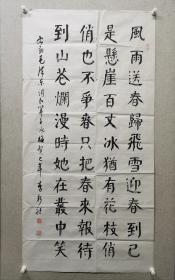 風雨送春歸飛雪迎春到已
是懸崖百丈冰猶有花枝俏
俏也不爭春只把春來報待
到山花爛漫時她在叢中笑
毛澤東詞卜算子咏梅